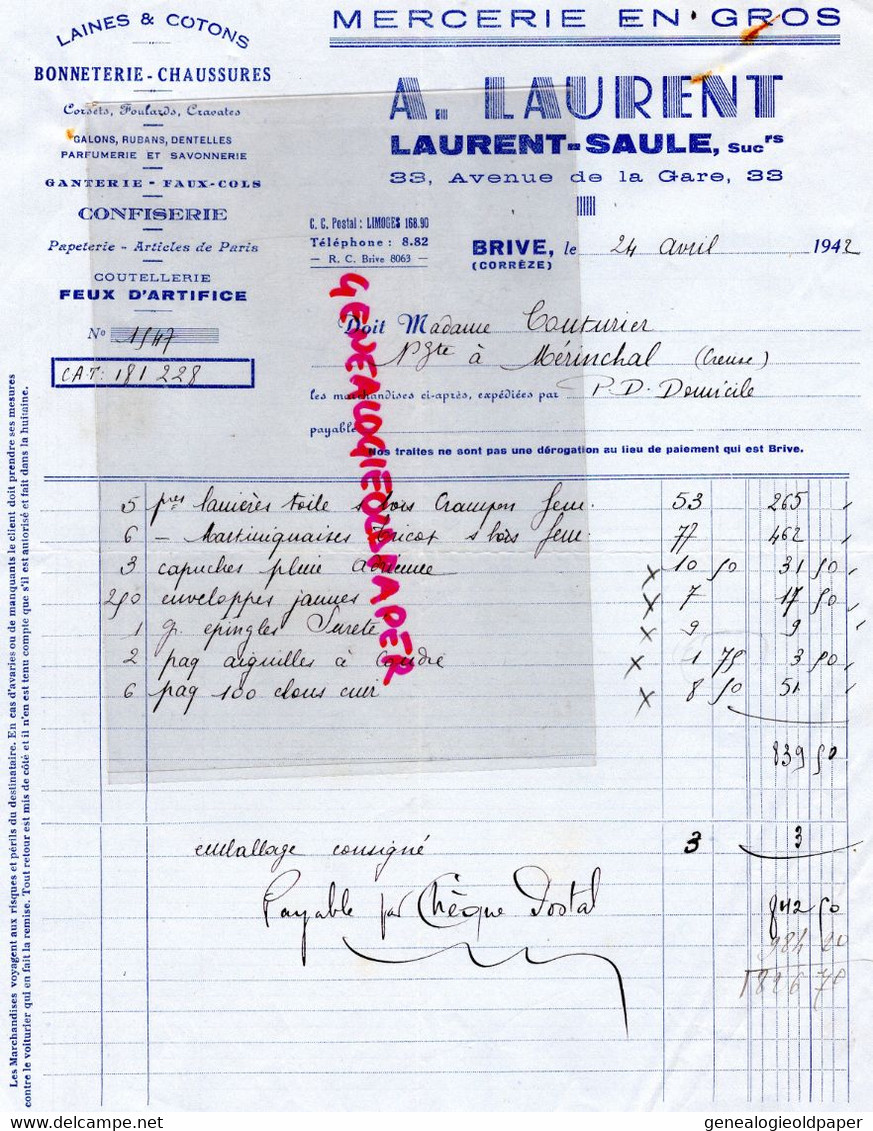 LAINES & COTONS
BONNETERIE - CHAUSSURES
Corsets, Foulards, Cravates
GALONS, RUBANS, DENTELLES
PARFUMERIE ET SAVONNERIE
GANTERIE - FAUX-COLS
CONFISERIE
Papeterie - Articles de Paris
COUTELLERIE
FEUX D'ARTIFICE
No 1547
CAT: 181 228
MERCERIE EN GROS
A. LAURENT
LAURENT-SAULE, Sucrs
33, Avenue de la Gare, 33
C. C. Postal : LIMOGES 168.90
Téléphone : 8.82
— R. C. Brive 8063 —
BRIVE, le 24 avril 1942
(CORRÈZE)
Doit Madame Couturier
Ngte à Mérinchal (Creuse)
les marchandises ci-après, expédiées par P.D. Domicile
payable
Nos traites ne sont pas une dérogation au lieu de paiement qui est Brive.
5 pres lanières toile s bois Crampon fem. 53 265
6 — Martiniquaises tricot s bois fem. 77 462
3 capuches pluie x 10 50 31 50
250 enveloppes jaunes x 7 17 50
1 g. épingles Sureté x 9 9
2 paq aiguilles à Coudre x 1 75 3 50
6 paq 100 clous cuir x 8 50 51
839 50
emballage consigné 3 3
Payable par Chèque Postal 842 50
984 20
1826 70
Les Marchandises voyagent aux risques et périls du destinataire. En cas d'avaries ou de manquants le client doit prendre ses mesures
contre le voiturier qui en fait la remise. Tout retour est mis de côté et il n'en est tenu compte que s'il est autorisé et fait dans la huitaine.
GENEALOGIEOLDPAPER
genealogieoldpaper